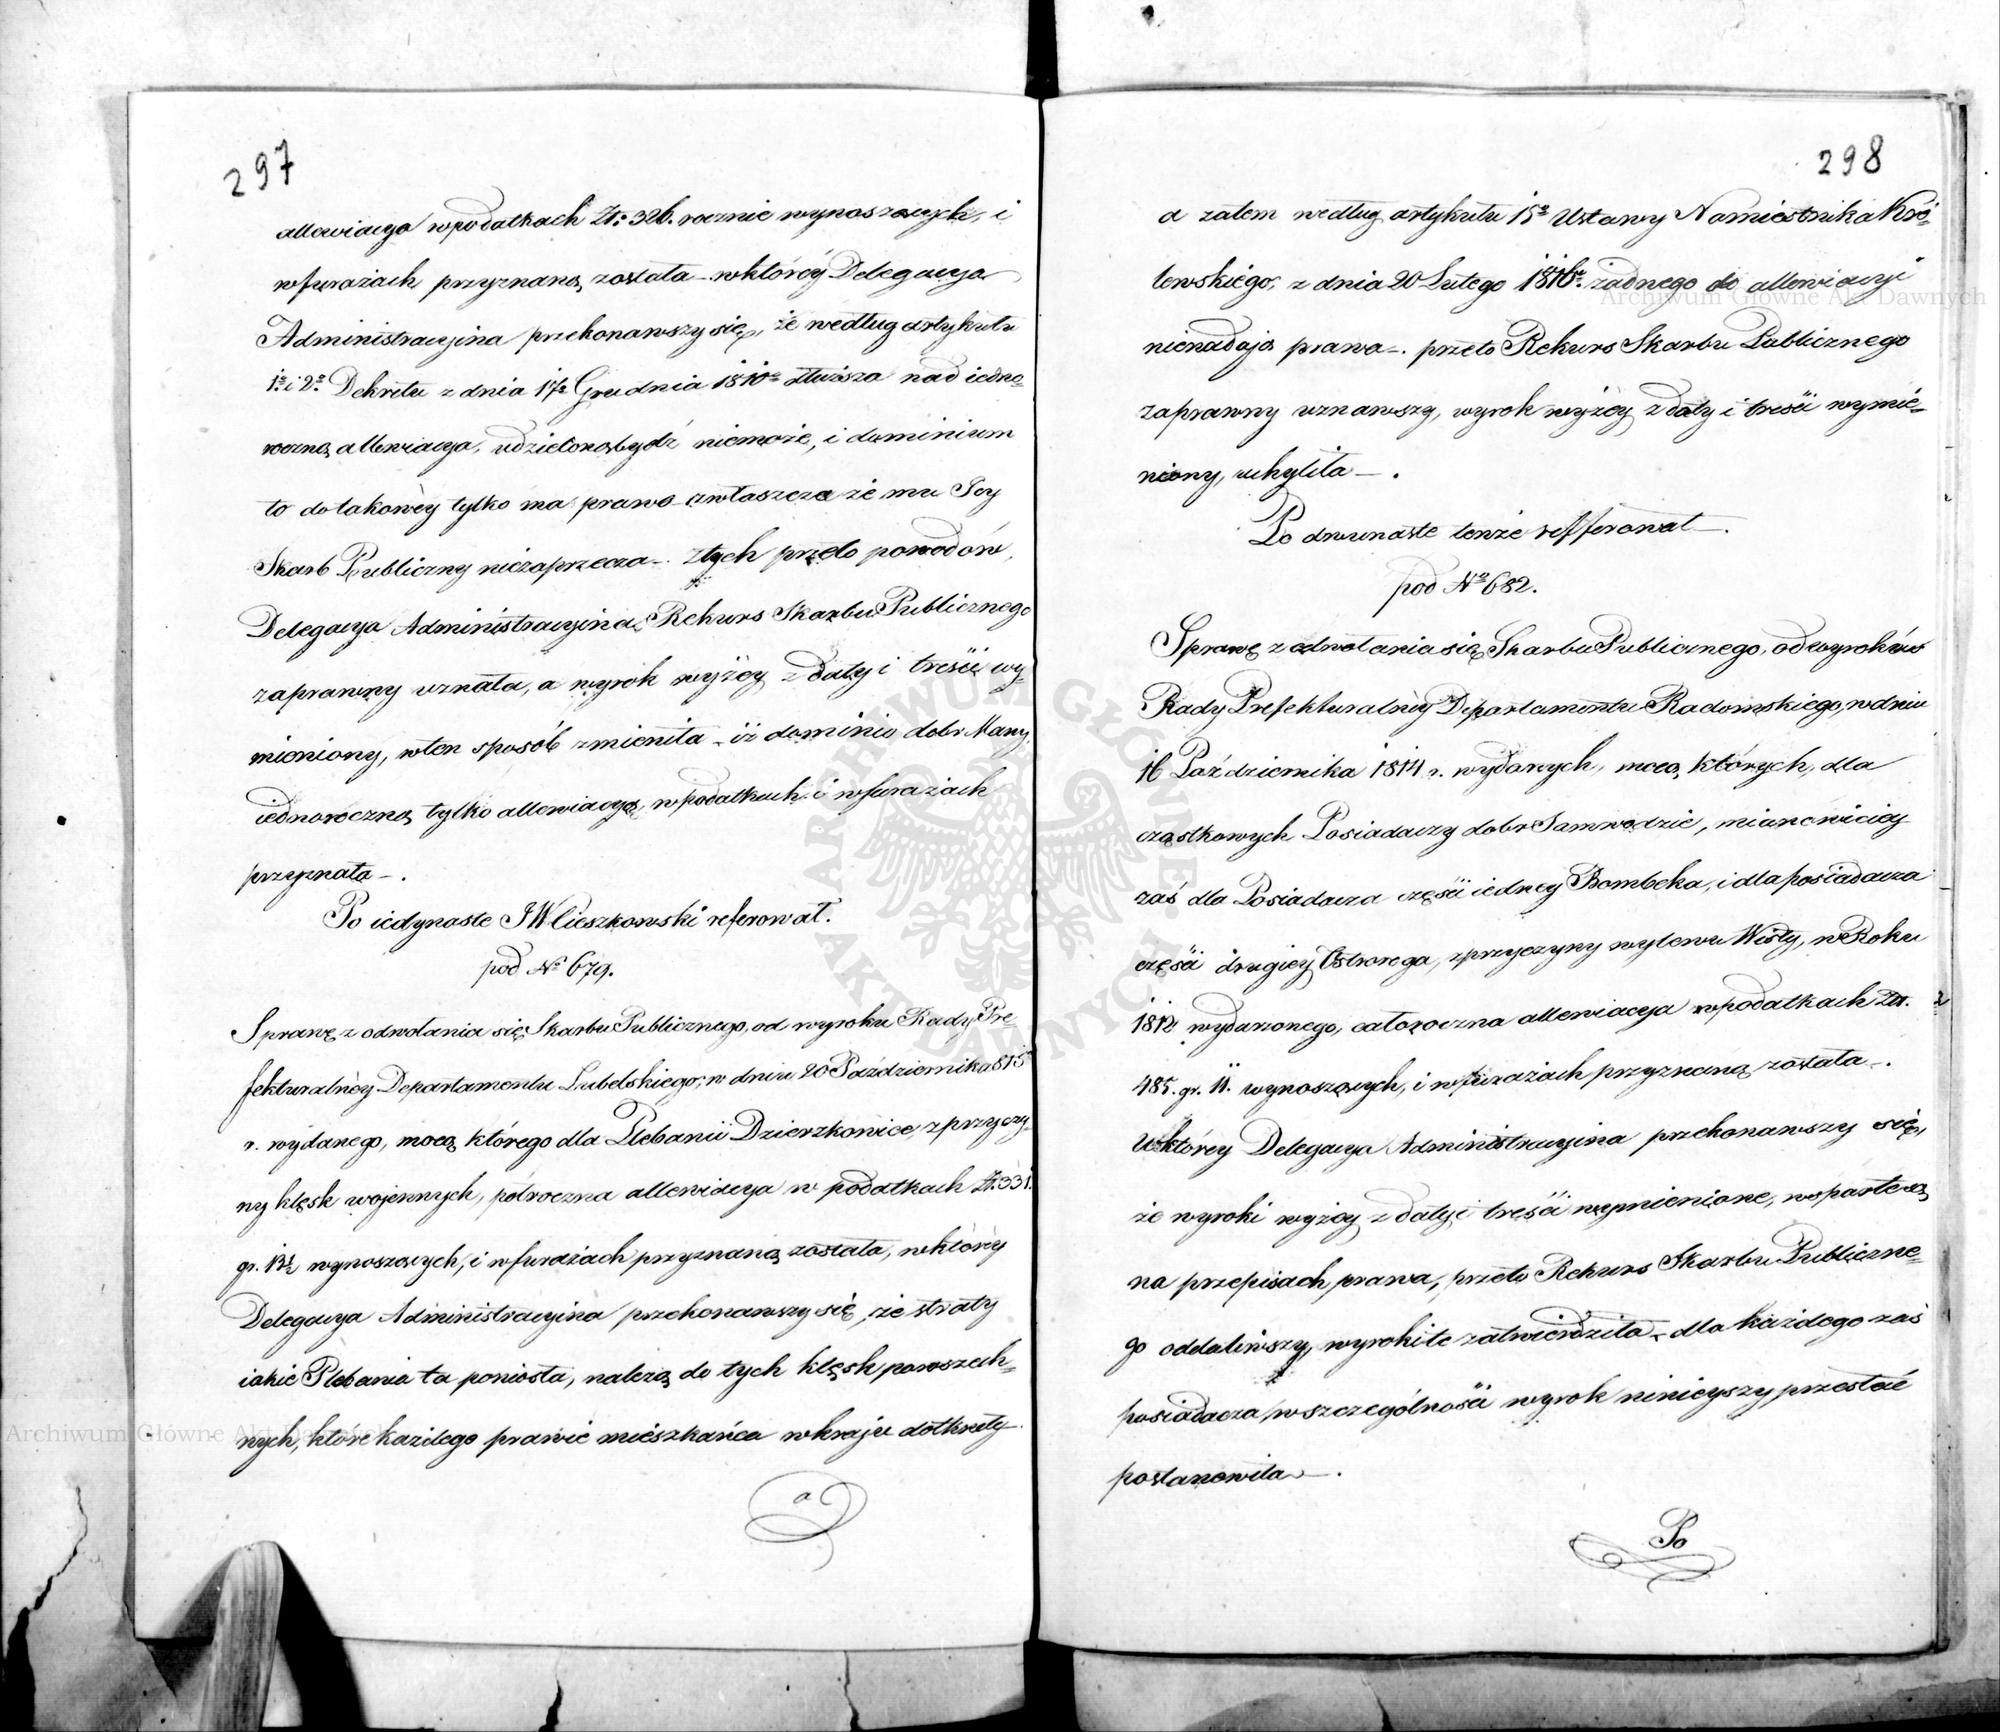 297
allewiacya w podatkach Zł: 326. rocznie wynoszących, i
w furażach przyznaną została – w któréy Delegacya
Administracyina przekonawszy się, że według artykułu
1º i 2º Dekretu z dnia 17º Grudnia 1810º dłuższa nad iedno-
roczną allewiacya, udzieloną bydź niemoże, i dominium
to do takowéy tylko ma prawo – zwłaszcza że mu Jey
Skarb Publiczny niezaprzecza –. z tych przeto powodów,
Delegacya Administracyina Rekurs Skarbu Publicznego
zaprawny uznała, a wyrok wyżéy z daty i treści wy-
mieniony, w ten sposób zmieniła – iż dominio dobr Many
iednoroczną tylko allewiacyą, w podatkach i w furażach
przyznała –.
Po iedynaste JW Cieszkowski referował.
pod Nº 679.
Sprawę z odwołania się Skarbu Publicznego, od wyroku Rady Pre-
fekturalnéy Departamentu Lubelskiego, w dniu 20 Października 815
r. wydanego, mocą którego dla Plebanii Dzierzkowice, z przyczy-
ny klęsk woiennych, półroczna allewiacya w podatkach Zł. 331.
gr. 13½ wynoszących, i w furażach przyznaną została, w któréy
Delegacya Administracyina przekonawszy się, że straty
iakie Plebania ta poniosła, należą do tych klęsk powszech-
nych, które każdego prawie mieszkańca w kraju dotknęły
a
298
a zatem według artykułu 15º Ustawy Namiestnika Kró-
lewskiego, z dnia 20 Lutego 1816r. żadnego do allewiacyi
nienadają prawa –. przeto Rekurs Skarbu Publicznego
zaprawny uznawszy, wyrok wyżéy z daty i treści wymie-
niony, uchyliła –.
Po dwunaste tenże refferował –.
pod Nº 682.
Sprawę z odwołania się Skarbu Publicznego, od wyroków
Rady Prefekturalnéy Departamentu Radomskiego, w dniu
16 Października 1814 r. wydanych, mocą których, dla
cząstkowych Posiadaczy dobr Samwodzie, mianowiciey
zaś dla Posiadacza części iedney Bombeka, i dla posiadacza
części drugiey Ostroroga, z przyczyny wylewu Wisły, w Roku
1812 wydarzonego, całoroczna allewiacya w podatkach Zł.
485. gr. 11. wynoszących, i w furażach przyznaną została –.
w którey Delegacya Administracyina przekonawszy się,
że wyroki wyżey z daty i treści wymienione, wsparte są
na przepisach prawa, przeto Rekurs Skarbu Publiczne-
go oddaliwszy, wyroki te zatwierdziła – dla każdego zaś
posiadacza w szczególności wyrok ninieyszy przesłać
postanowiła –.
Po
ARCHIWUM GŁÓWNE AKT DAWNYCH
Archiwum Główne Akt Dawnych
Archiwum Główne Akt Dawnych